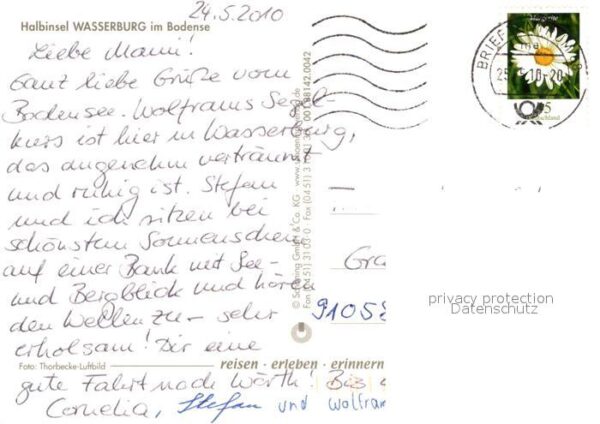 24.5.2010
Halbinsel WASSERBURG im Bodense
Liebe Mami!
Ganz liebe Grüße vom
Bodensee. Wolframs Segel-
kurs ist hier in Wasserburg,
das angenehm verträumt
und ruhig ist. Stefan
und ich sitzen bei
schönstem Sonnenschein
auf einer Bank mit See-
und Bergblick und hören
den Wellen zu – sehr
erholsam! Dir eine
gute Fahrt nach Wörth! Bis
Cornelia, Stefan und Wolfram
Foto: Thorbecke-Luftbild
reisen · erleben · erinnern
© Schöning GmbH & Co. KG
Gra
91058
BRIEF
privacy protection
Datenschutz